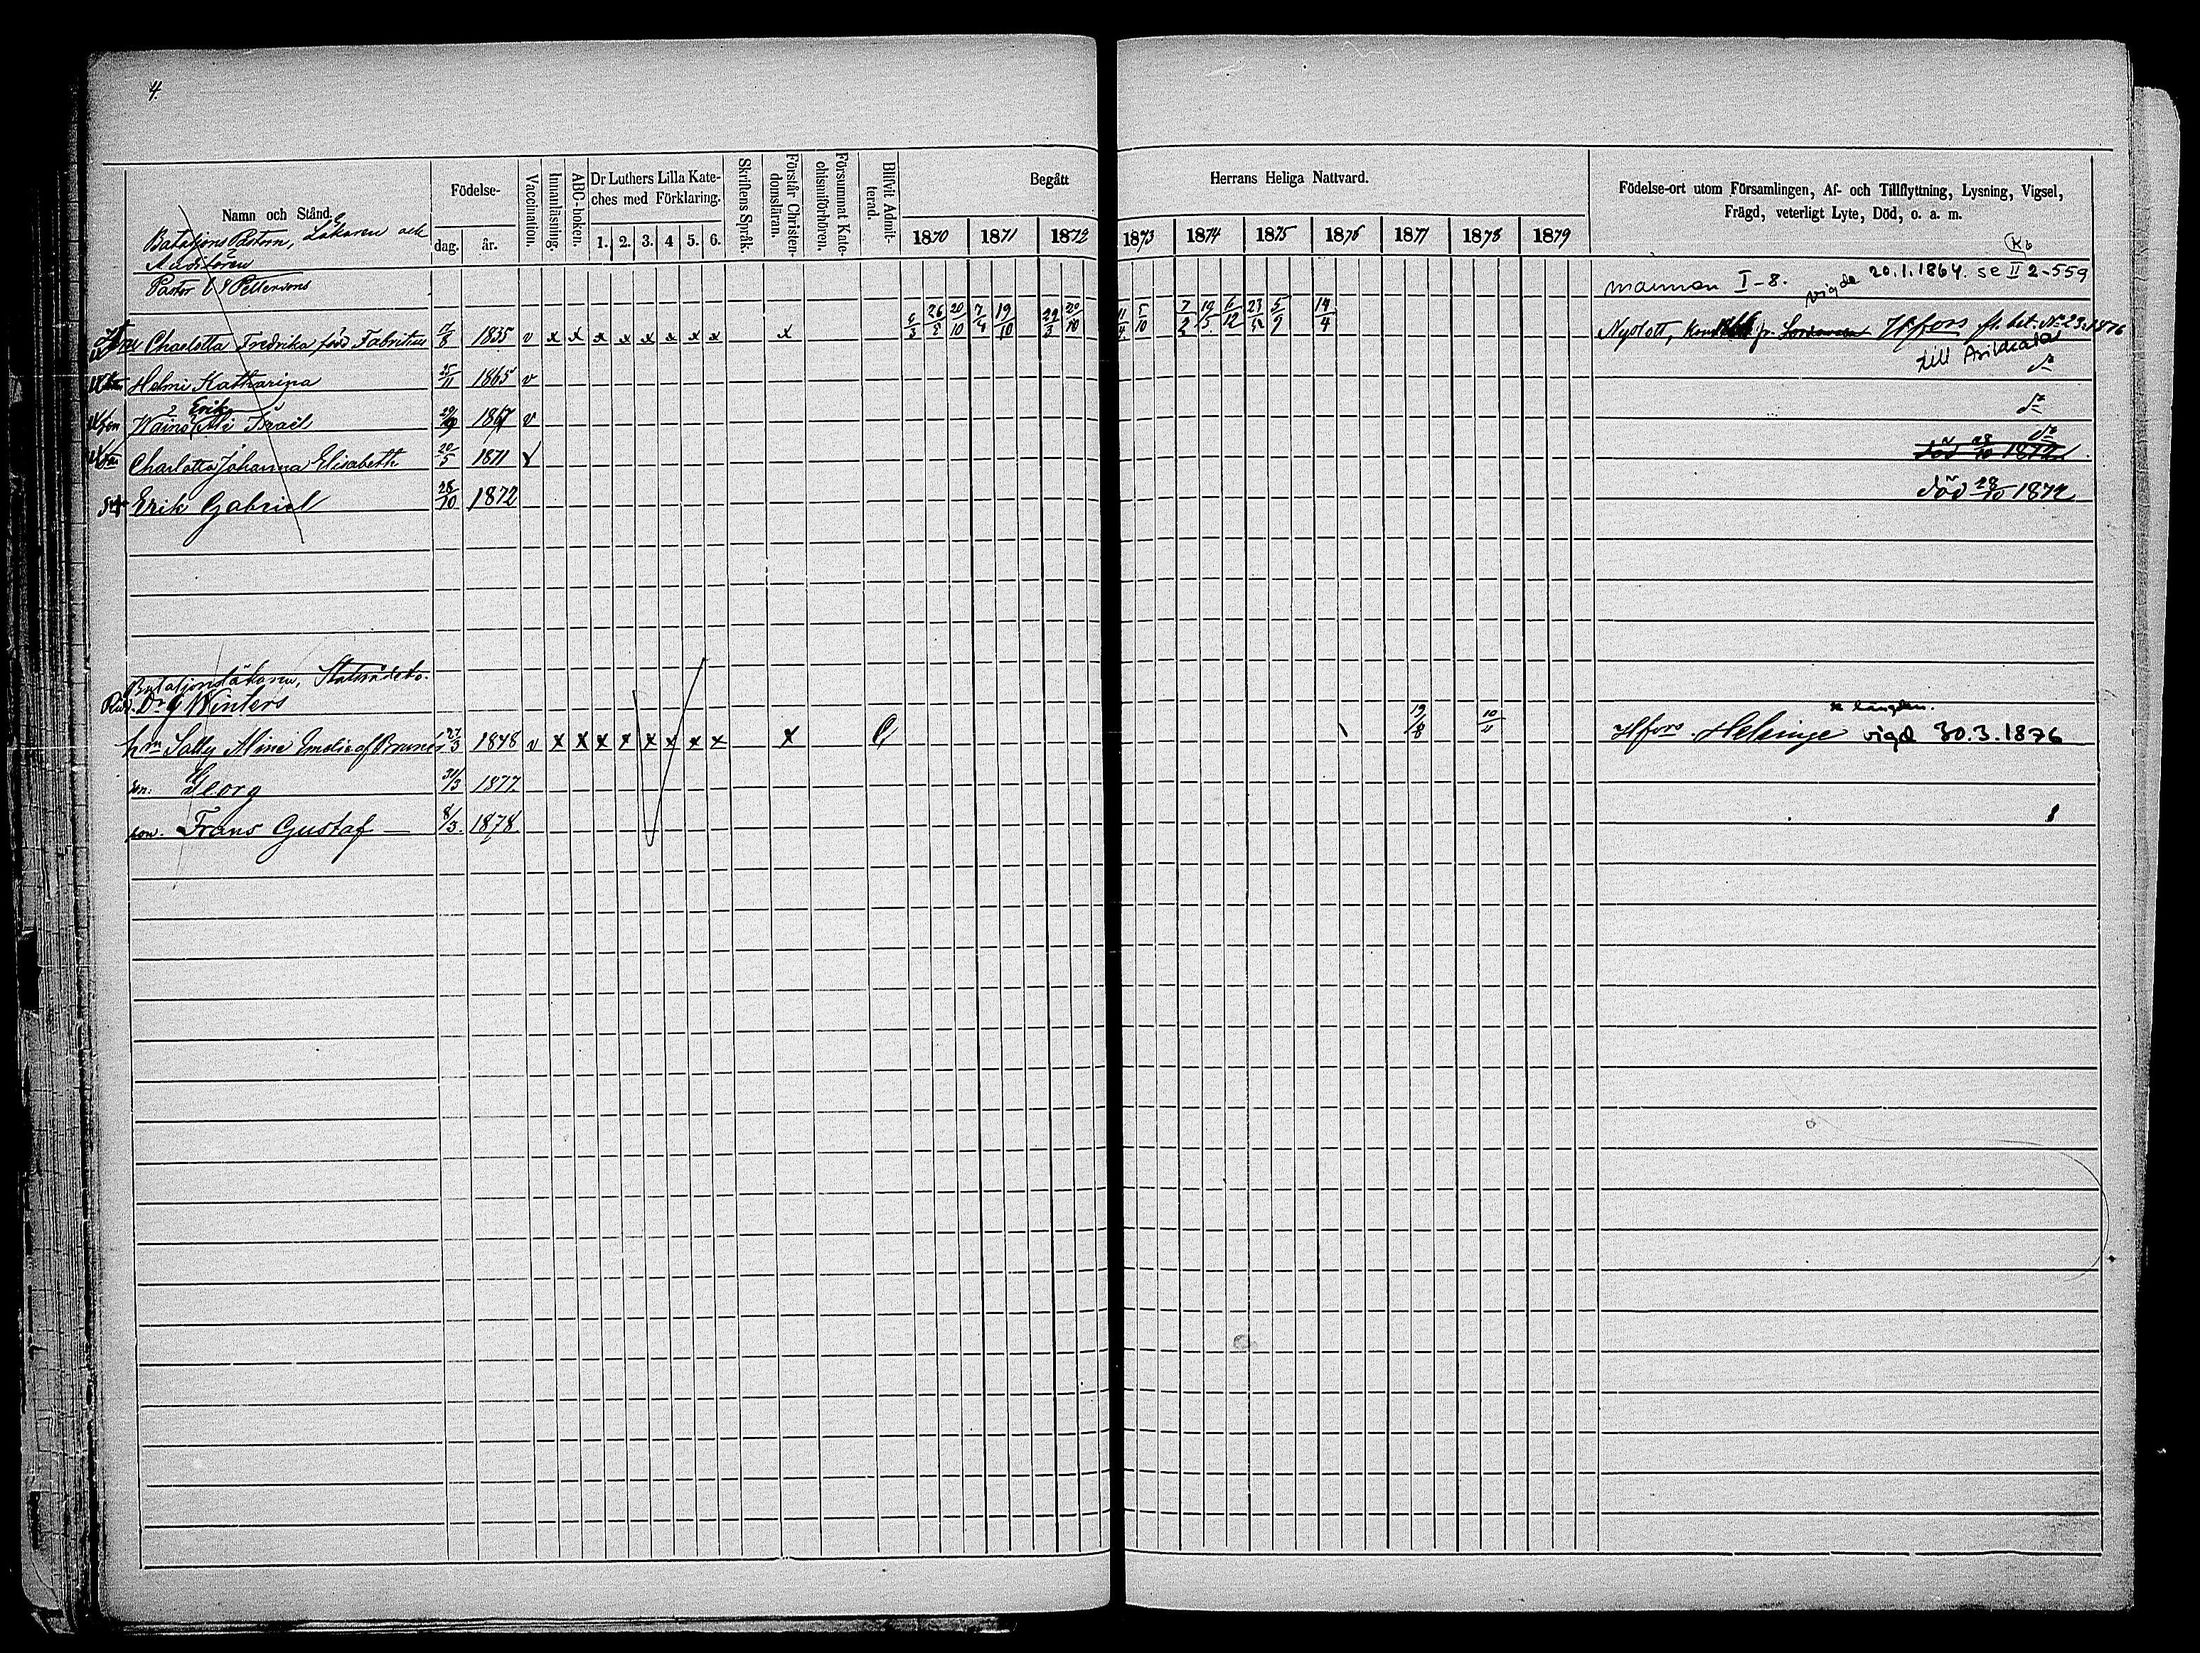 4.
Namn och Stånd.
Födelse-
dag.
år.
Vaccination.
Innanläsning.
ABC-boken.
Dr Luthers Lilla Kate-
ches med Förklaring.
1. 2. 3. 4 5. 6.
Skriftens Språk.
Förstår Christen-
domsläran.
Försummat Kate-
chismiförhören.
Blifvit Admit-
terad.
Begått Herrans Heliga Nattvard.
1870 1871 1872 1873 1874 1875 1876 1877 1878 1879
Födelse-ort utom Församlingen, Af- och Tillflyttning, Lysning, Vigsel,
Frägd, veterligt Lyte, Död, o. a. m.
Bataljons Pastorn, Läkaren och
Auditören
Pastor Pettersons
mannen I-8. vigde 20.1.1864. se Kb II 2-559
Charlotta Fredrika född Fabritius 1835 v x x x x x x x x x 6/3 26/5 20/10 7/4 19/10 29/3 20/10 11/4 5/10 7/2 19/5 6/12 23/5 5/9 14/4 Nyslott, Hfors fl. bet. No 23. 1876
till
Helmi Katharina 25/11 1865 v do
Erik
Waino Israel 1867 v do
Charlotta Johanna Elisabeth 20/5 1871 v do
död 28/10 1872
Erik Gabriel 28/10 1872 död 28/10 1872
Bataljonsläkaren, Statsrådet
Dr G Winters
hm Sally Mine Emelie af Bruner 27/3 1848 v x x x x x x x x x 19/8 10/11 Hfors. Helsinge vigd 30.3.1876
se längden.
son: Georg 31/3 1877.
son. Frans Gustaf — 8/3. 1878